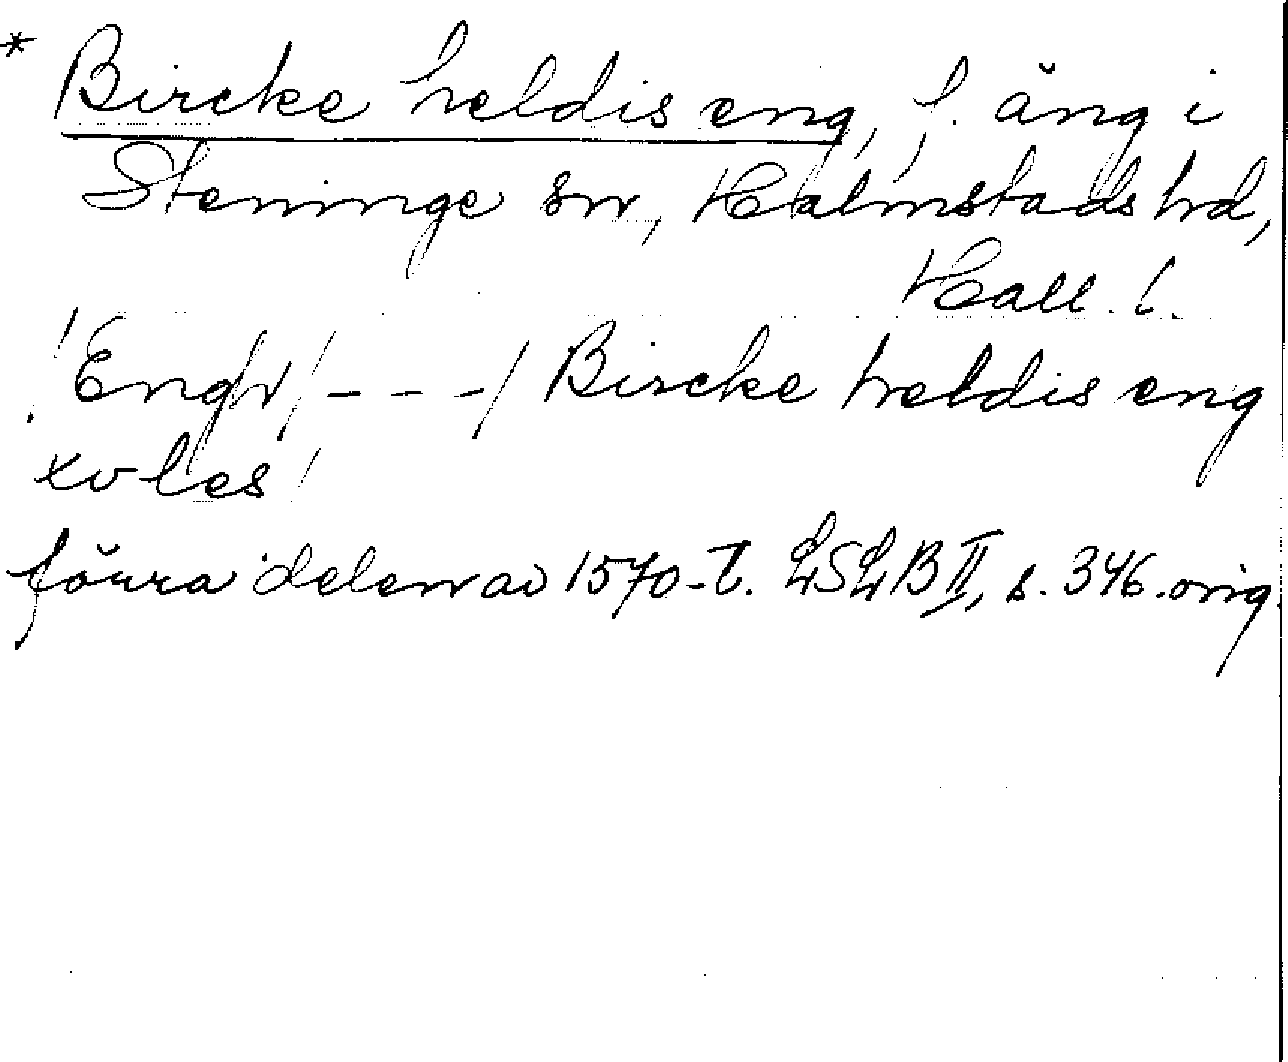 * Bircke heldis eng, f. äng i
Steninge sn, Halmstads hd,
Hall. l.
! Engh /- - -/ Bircke heldis eng
xv les !
förra delen av 1570-t. LSLB II, s. 346. orig.